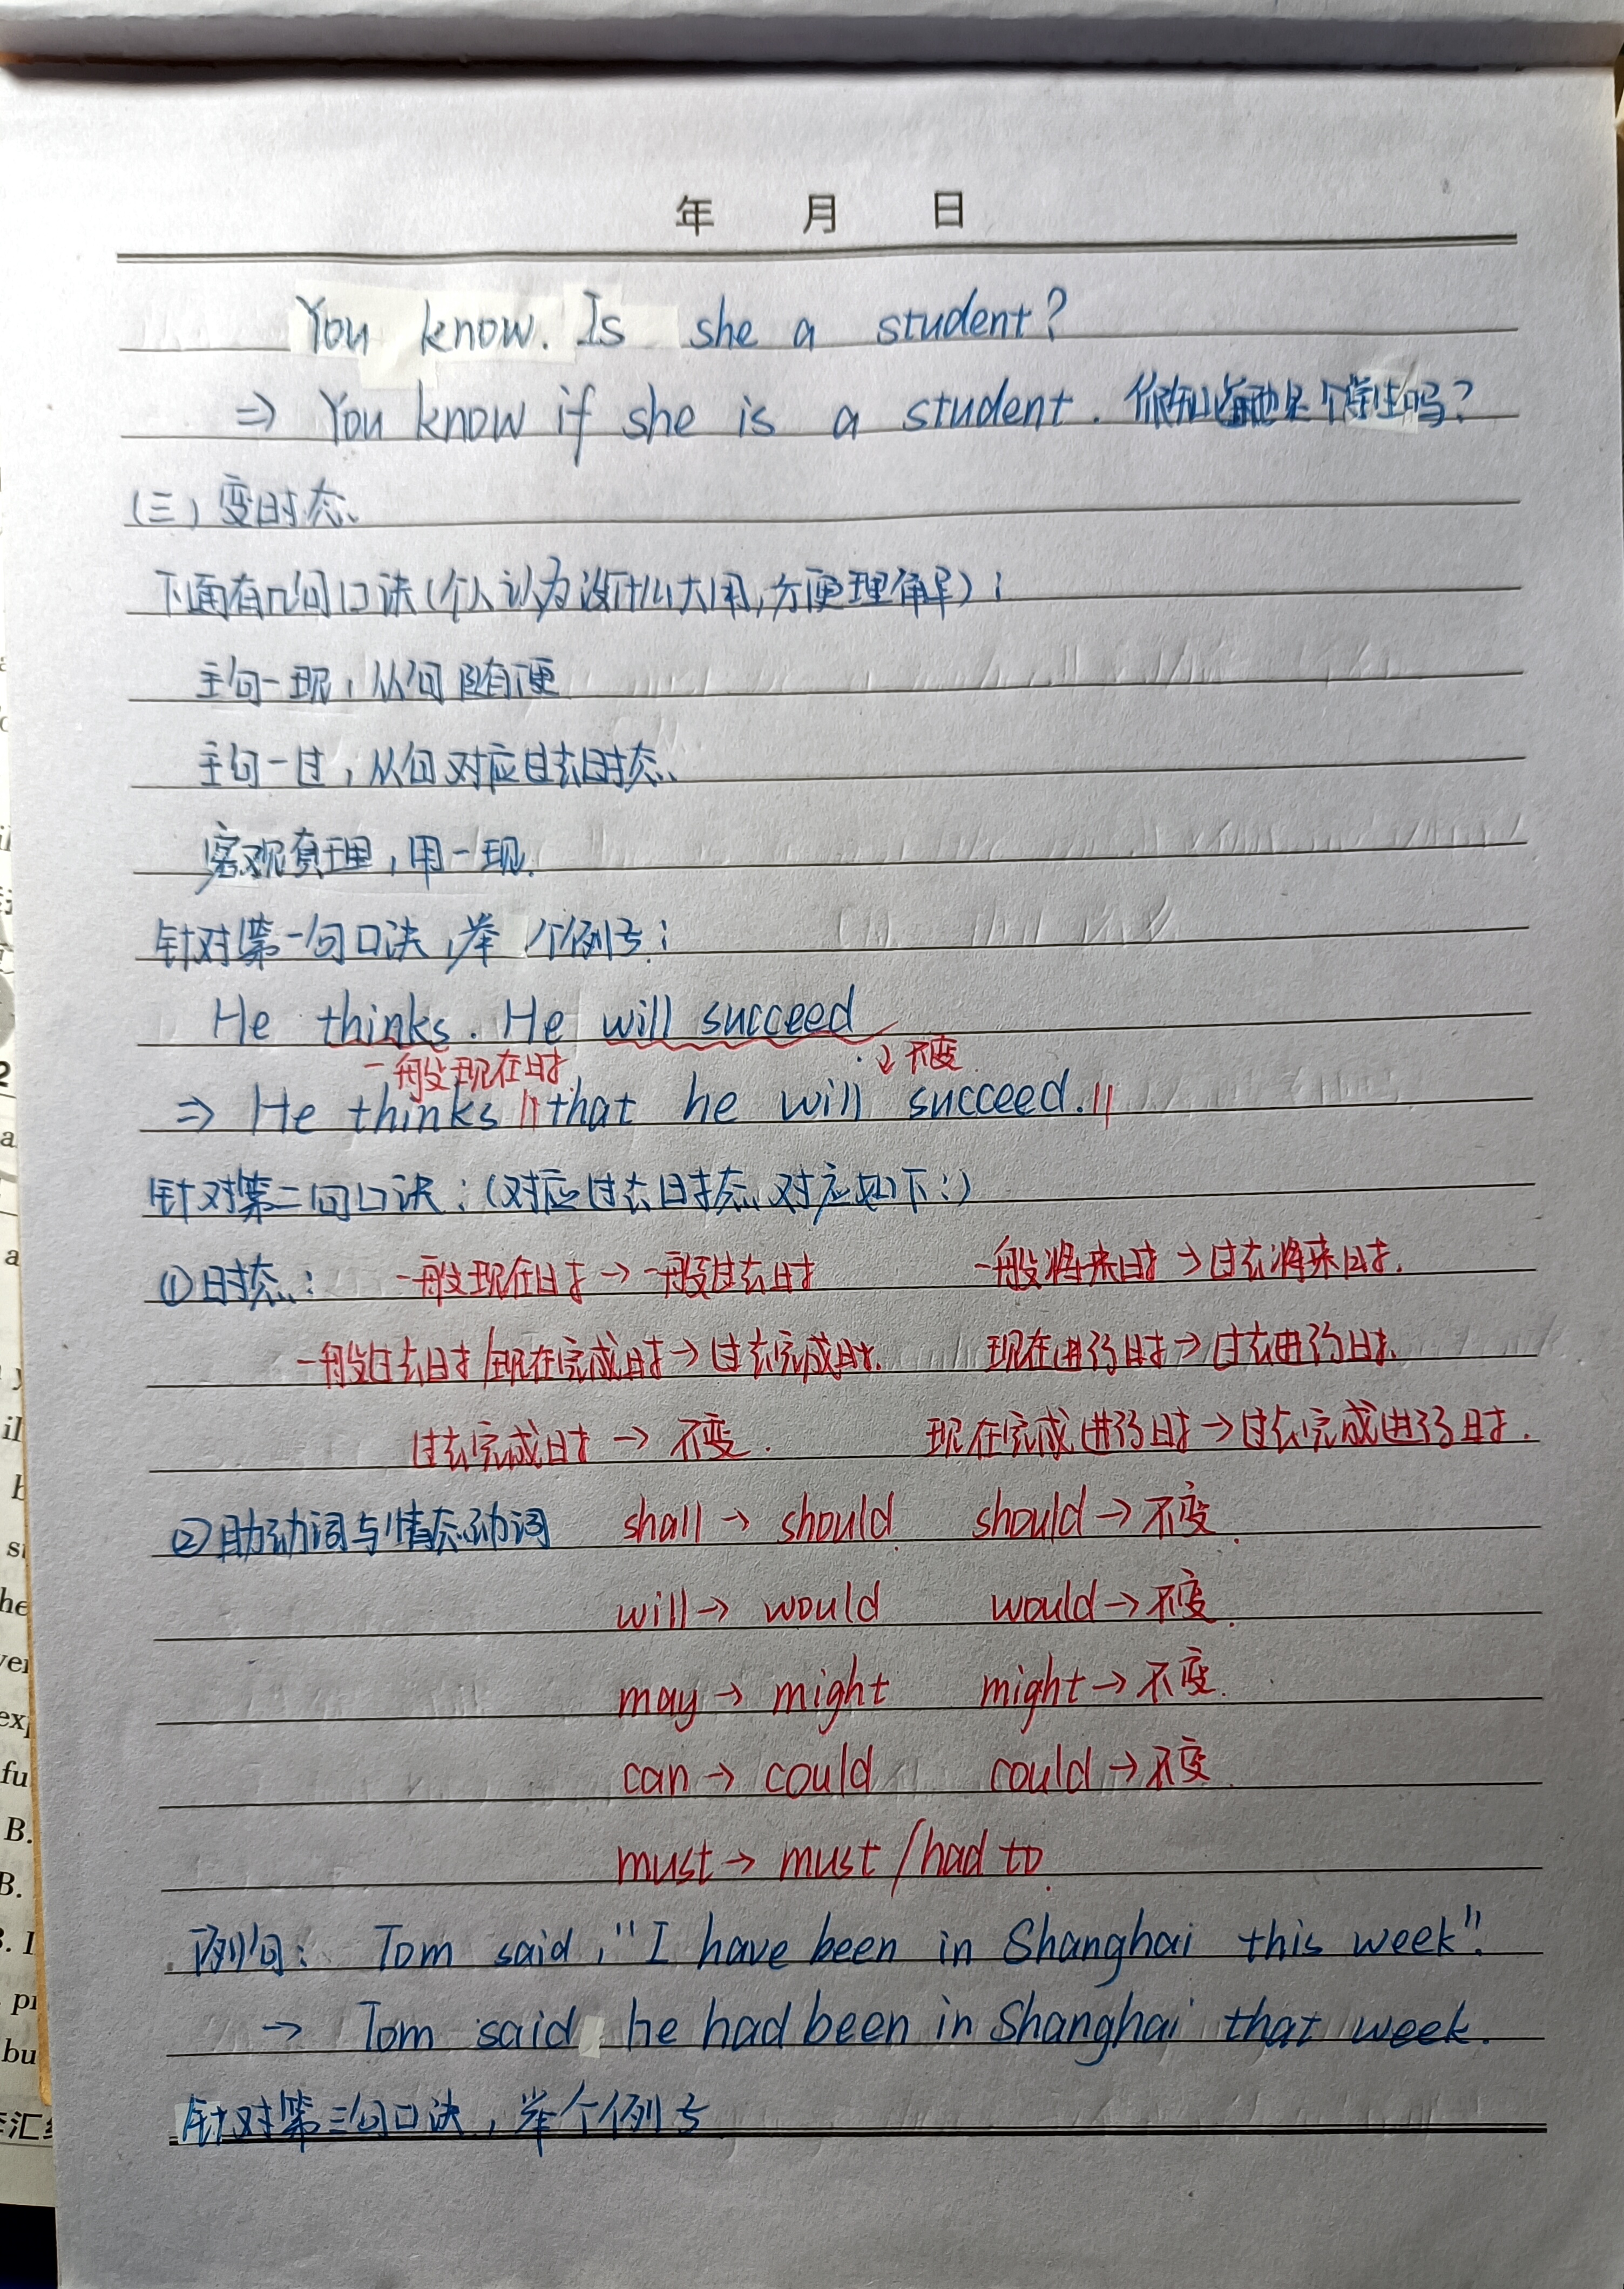 年 月 日
You know. Is she a student?
⇒ You know if she is a student. 你知道她是个学生吗?
(三) 变时态
下面有几句口诀(个人认为没什么大用,方便理解):
主句一现,从句随便
主句一过,从句对应过去时态
客观真理,用一现.
针对第一句口诀,举个例子:
He thinks. He will succeed
一般现在时 ↓不变
⇒ He thinks || that he will succeed. ||
针对第二句口诀:(对应过去时态对应如下:)
①时态: 一般现在时→一般过去时 一般将来时→过去将来时.
一般过去时/现在完成时→过去完成时. 现在进行时→过去进行时.
过去完成时→不变. 现在完成进行时→过去完成进行时.
②助动词与情态动词 shall→should should→不变.
will→would would→不变.
may→might might→不变.
can→could could→不变.
must→must/had to.
例句: Tom said, "I have been in Shanghai this week".
→ Tom said he had been in Shanghai that week.
针对第三句口诀,举个例子